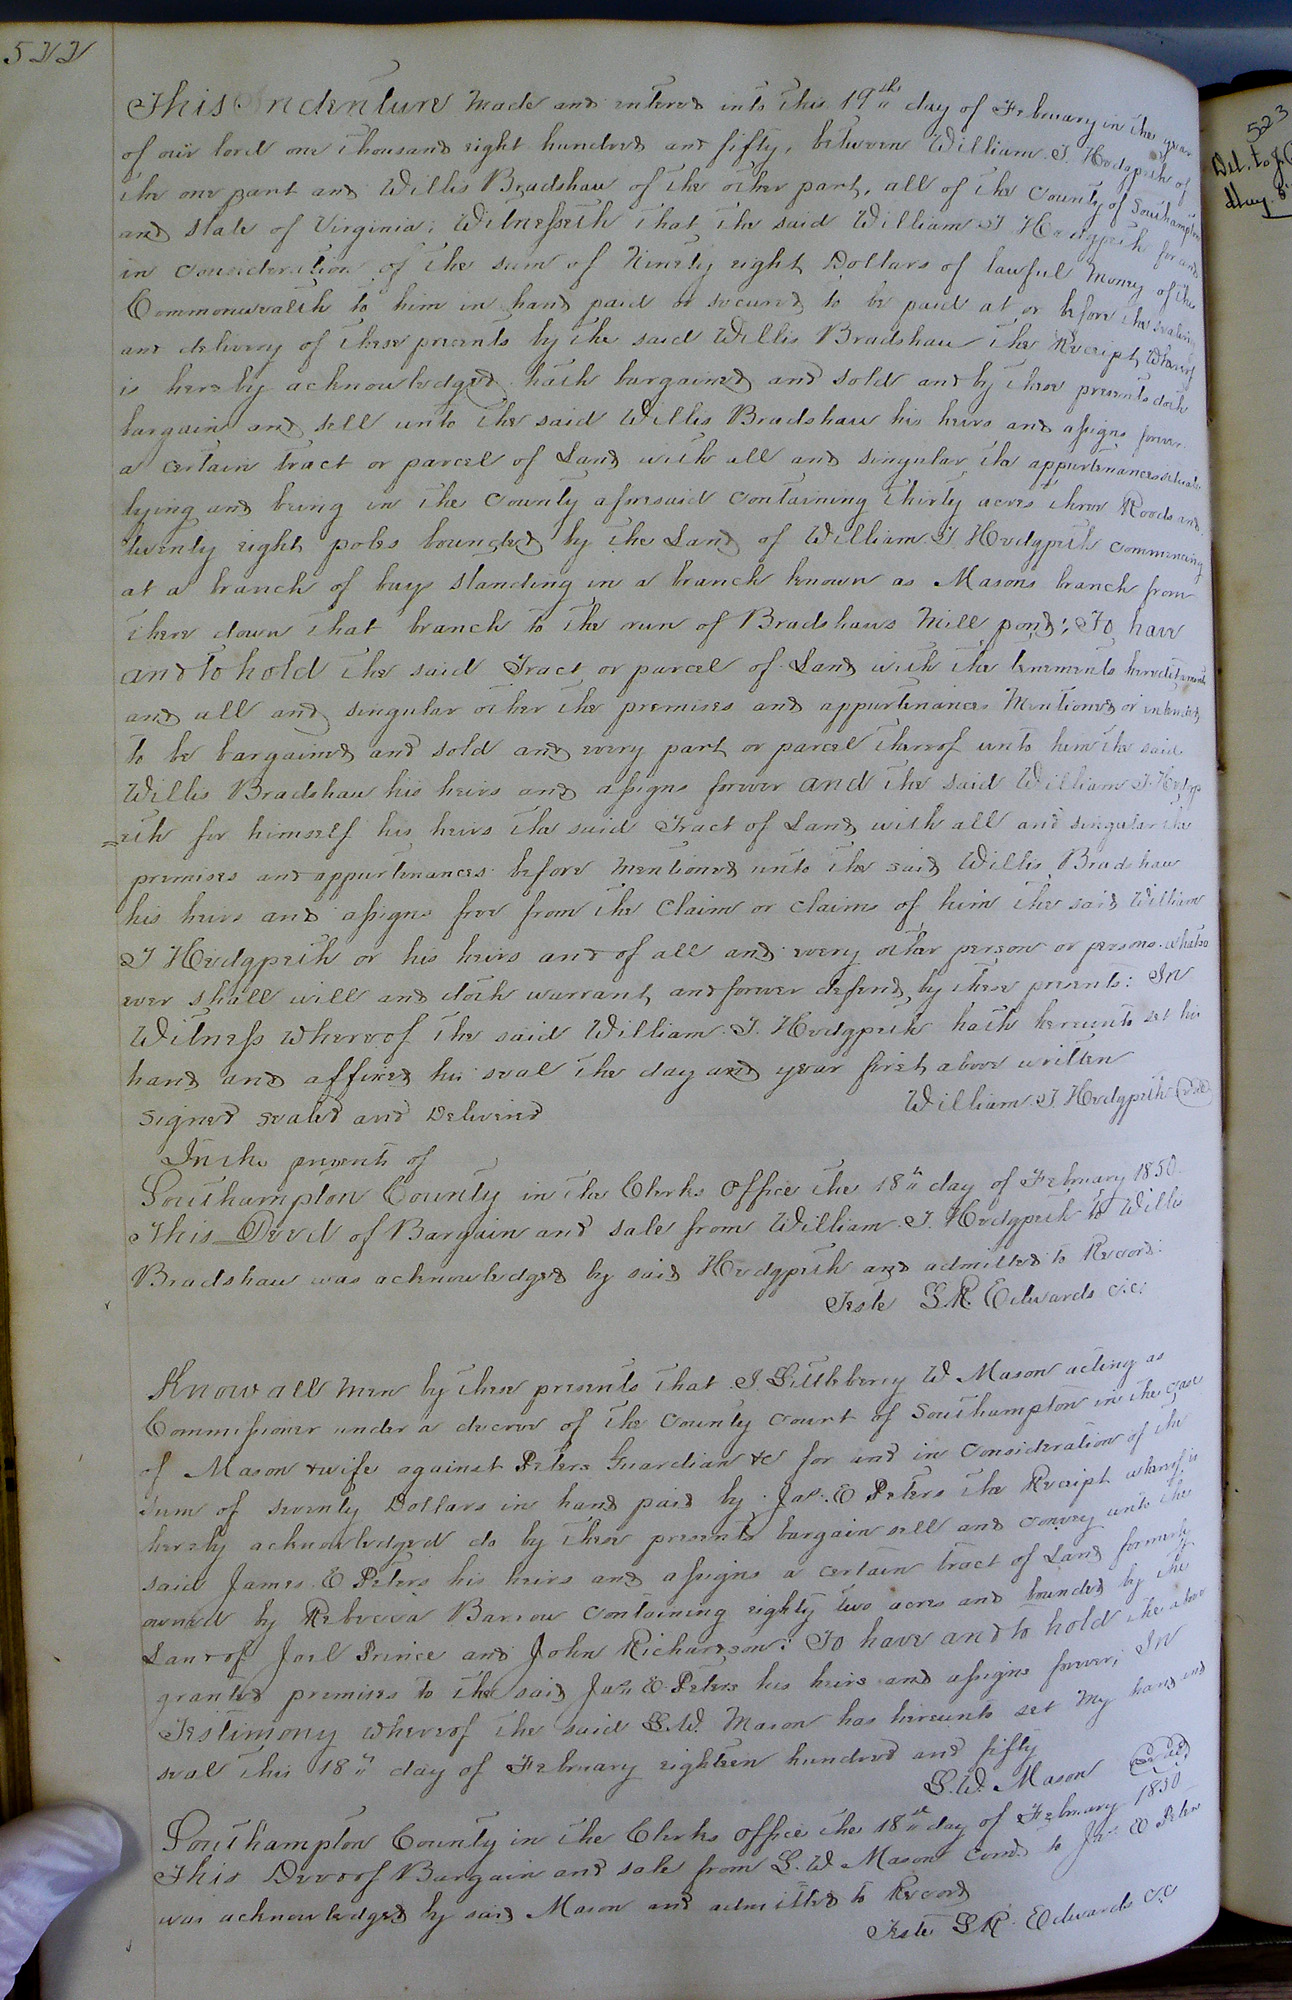 522
This Indenture Made and entered into this 19th day of February in the year
of our lord one thousand eight hundred and fifty, between William. T. Hedgpeth of
the one part and Willis Bradshaw of the other part, all of the County of Southampton
and state of Virginia: Witnesseth that the said William T Hedgpeth for and
in consideration of the sum of Ninety eight Dollars of lawful Money of the
Commonwealth to him in hand paid or secured to be paid at or before the sealing
and delivery of these presents by the said Willis Bradshaw the Receipt Whereof
is hereby acknowledged hath bargained and sold and by these presents doth
bargain and sell unto the said Willis Bradshaw his heirs and assigns forever
a certain tract or parcel of Land with all and singular the appurtenances situate
lying and being in the County aforesaid containing thirty acres three Roods and
twenty eight poles bounded by the Land of William. T. Hedgpeth commencing
at a branch of bays standing in a branch known as Masons branch from
there down that branch to the run of Bradshaws Mill pond; To have
and to hold the said Tract or parcel of Land with the tenements hereditaments
and all and singular other the premises and appurtenances Mentioned or intended
to be bargained and sold and every part or parcel thereof unto him the said
Willis Bradshaw his heirs and assigns forever and the said William T. Hedgp
=eth for himself his heirs the said Tract of Land with all and singular the
premises and appurtenances before Mentioned unto the said Willis Bradshaw
his heirs and assigns free from the claim or claims of him the said William
T Hedgpeth or his heirs and of all and every other person or persons whatso
ever shall will and doth warrant and forever defend by these presents: In
Witness whereof the said William. T. Hedgpeth hath hereunto set his
hand and affixed his seal the day and year first above written
Signed sealed and Delivered William. T. Hedgpeth (seal)
In the presents of
Southampton County in the Clerks Office the 18th day of February 1850.
This Deed of Bargain and sale from William. T. Hedgpeth to Willis
Bradshaw was acknowledged by said Hedgpeth and admitted to Record:
Teste L.R. Edwards c.c:
Know all Men by these presents that I Littleberry W Mason acting as
Commissioner under a decree of the County Court of Southampton in the case
of Mason & wife against Peters Guardian &c for and in consideration of the
sum of seventy Dollars in hand paid by Jas. E Peters the Receipt whereof is
hereby acknowledged do by these presents bargain sell and convey unto the
said James. E Peters his heirs and assigns a certain tract of Land formerly
owned by Rebecca Barrow containing eighty two acres and bounded by the
Land of Joel Prince and John Richardson: To have and to hold the above
granted premises to the said Jas E. Peters his heirs and assigns forever; In
Testimony whereof the said L.W. Mason has hereunto set My hand and
seal this 18th day of February eighteen hundred and fifty
L.W. Mason (seal)
Southampton County in the Clerks Office the 18th day of February 1850
This Deed of Bargain and sale from L. W Mason Comr. to Jas E Peters
was acknowledged by said Mason and admitted to Record
Teste L R. Edwards c.c
523
Del. to J.
Aug.